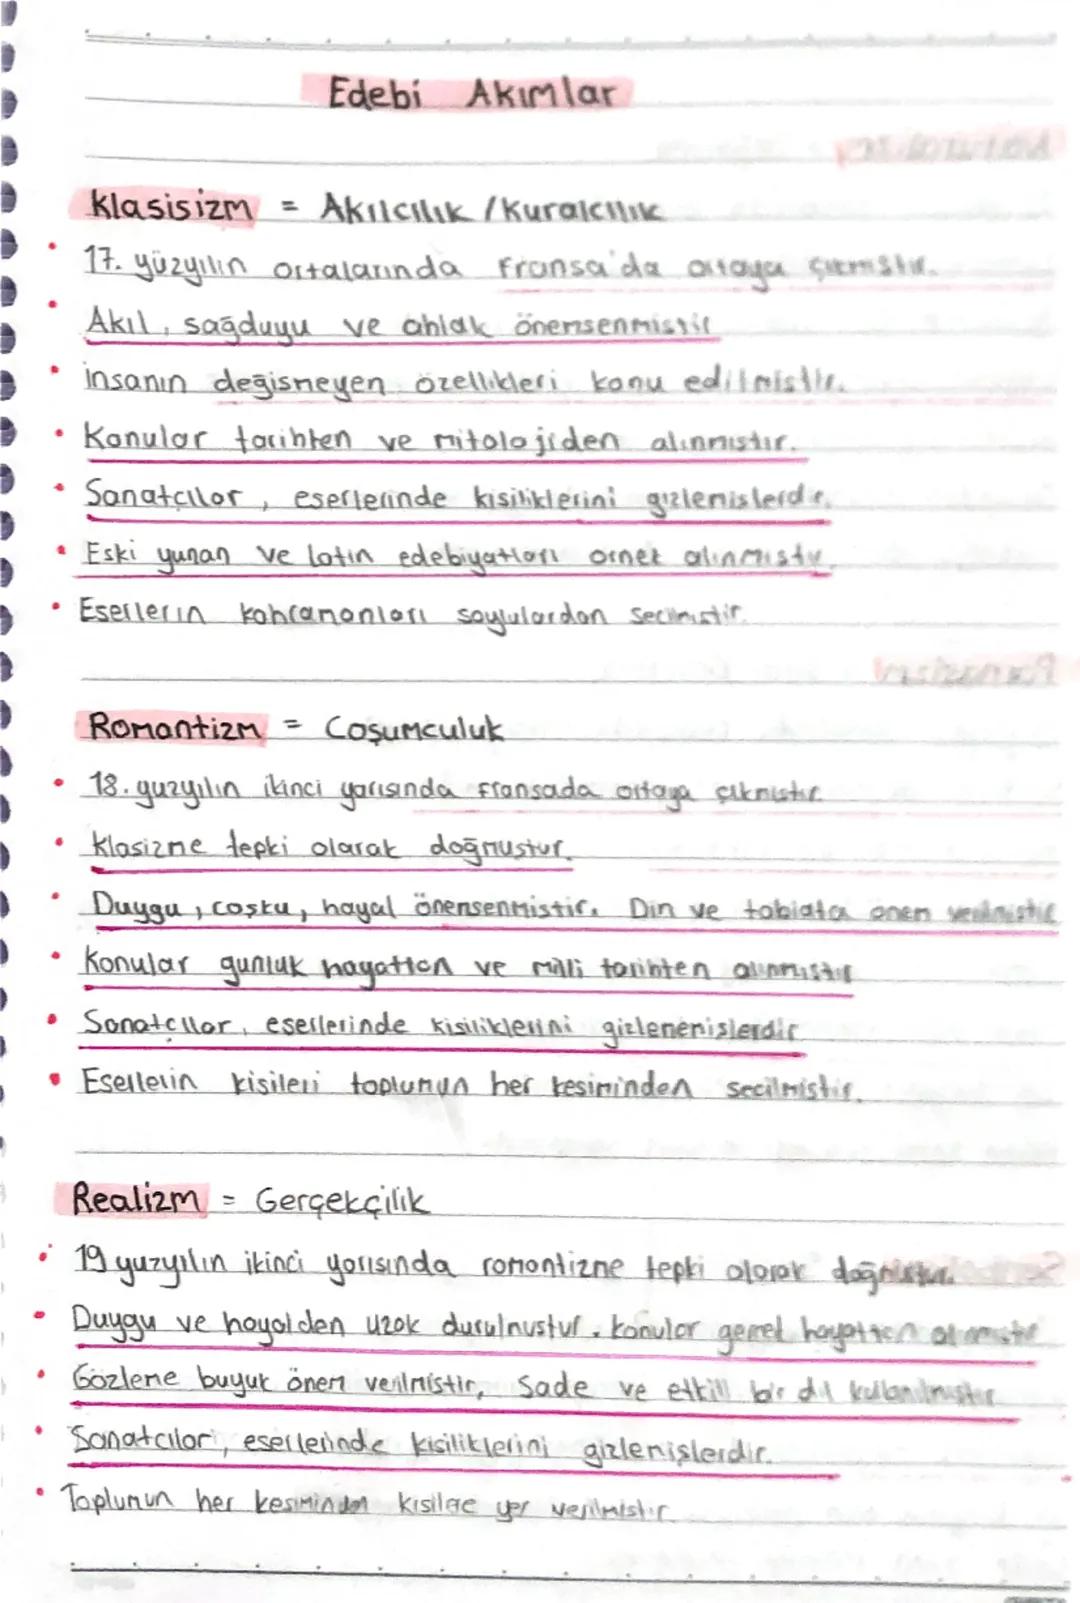 Edebi Akımlar
Klasisizm = Akılcılık / Kuralcılık
17. yüzyılın ortalarında Fransa'da ortaya çıkmıştır.
Akıl, sağduyu ve ahlak önemsenmistir
insanın değismeyen özellikleri konu edilmistir.
Konular tarihten ve mitolojiden alınmıstır.
Sanatçılar, eserlerinde kisiliklerini gizlemislerdir.
Eski yunan ve latin edebiyatları ornek alınmıstır.
Eserlerin kahramanları soylulardan secilmistir.
Romantizm = Coşumculuk
18. yuzyılın ikinci yarısında Fransada ortaya çıkmıstır.
Klasizme tepki olarak doğmustur.
Duygu, coşku, hayal önemsenmistir. Din ve tabiata onem verilmistir
Konular gunluk hayattan ve milli tarihten alınmıstır
Sanatcılar, eserlerinde kisiliklerini gizlememislerdir
Eserlerin kisileri toplumun her kesiminden secilmistir.
Realizm = Gerçekçilik
19 yuzyılın ikinci yarısında romantizme tepki olarak doğmustur.
Duygu ve hayalden uzak durulmustur. Konular gerçek hayattan alınmıstır
Gözleme buyuk önem verilmistir, Sade ve etkili bir dil kullanılmıstır
Sanatcılar, eserlerinde kisiliklerini gizlemişlerdir.
Toplumun her kesiminden kisilere yer verilmistir.